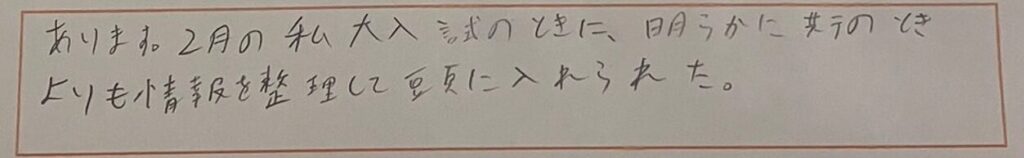 あります。2月の私大入試のときに、明らかに共テのとき
よりも情報を整理して頭に入れられた。